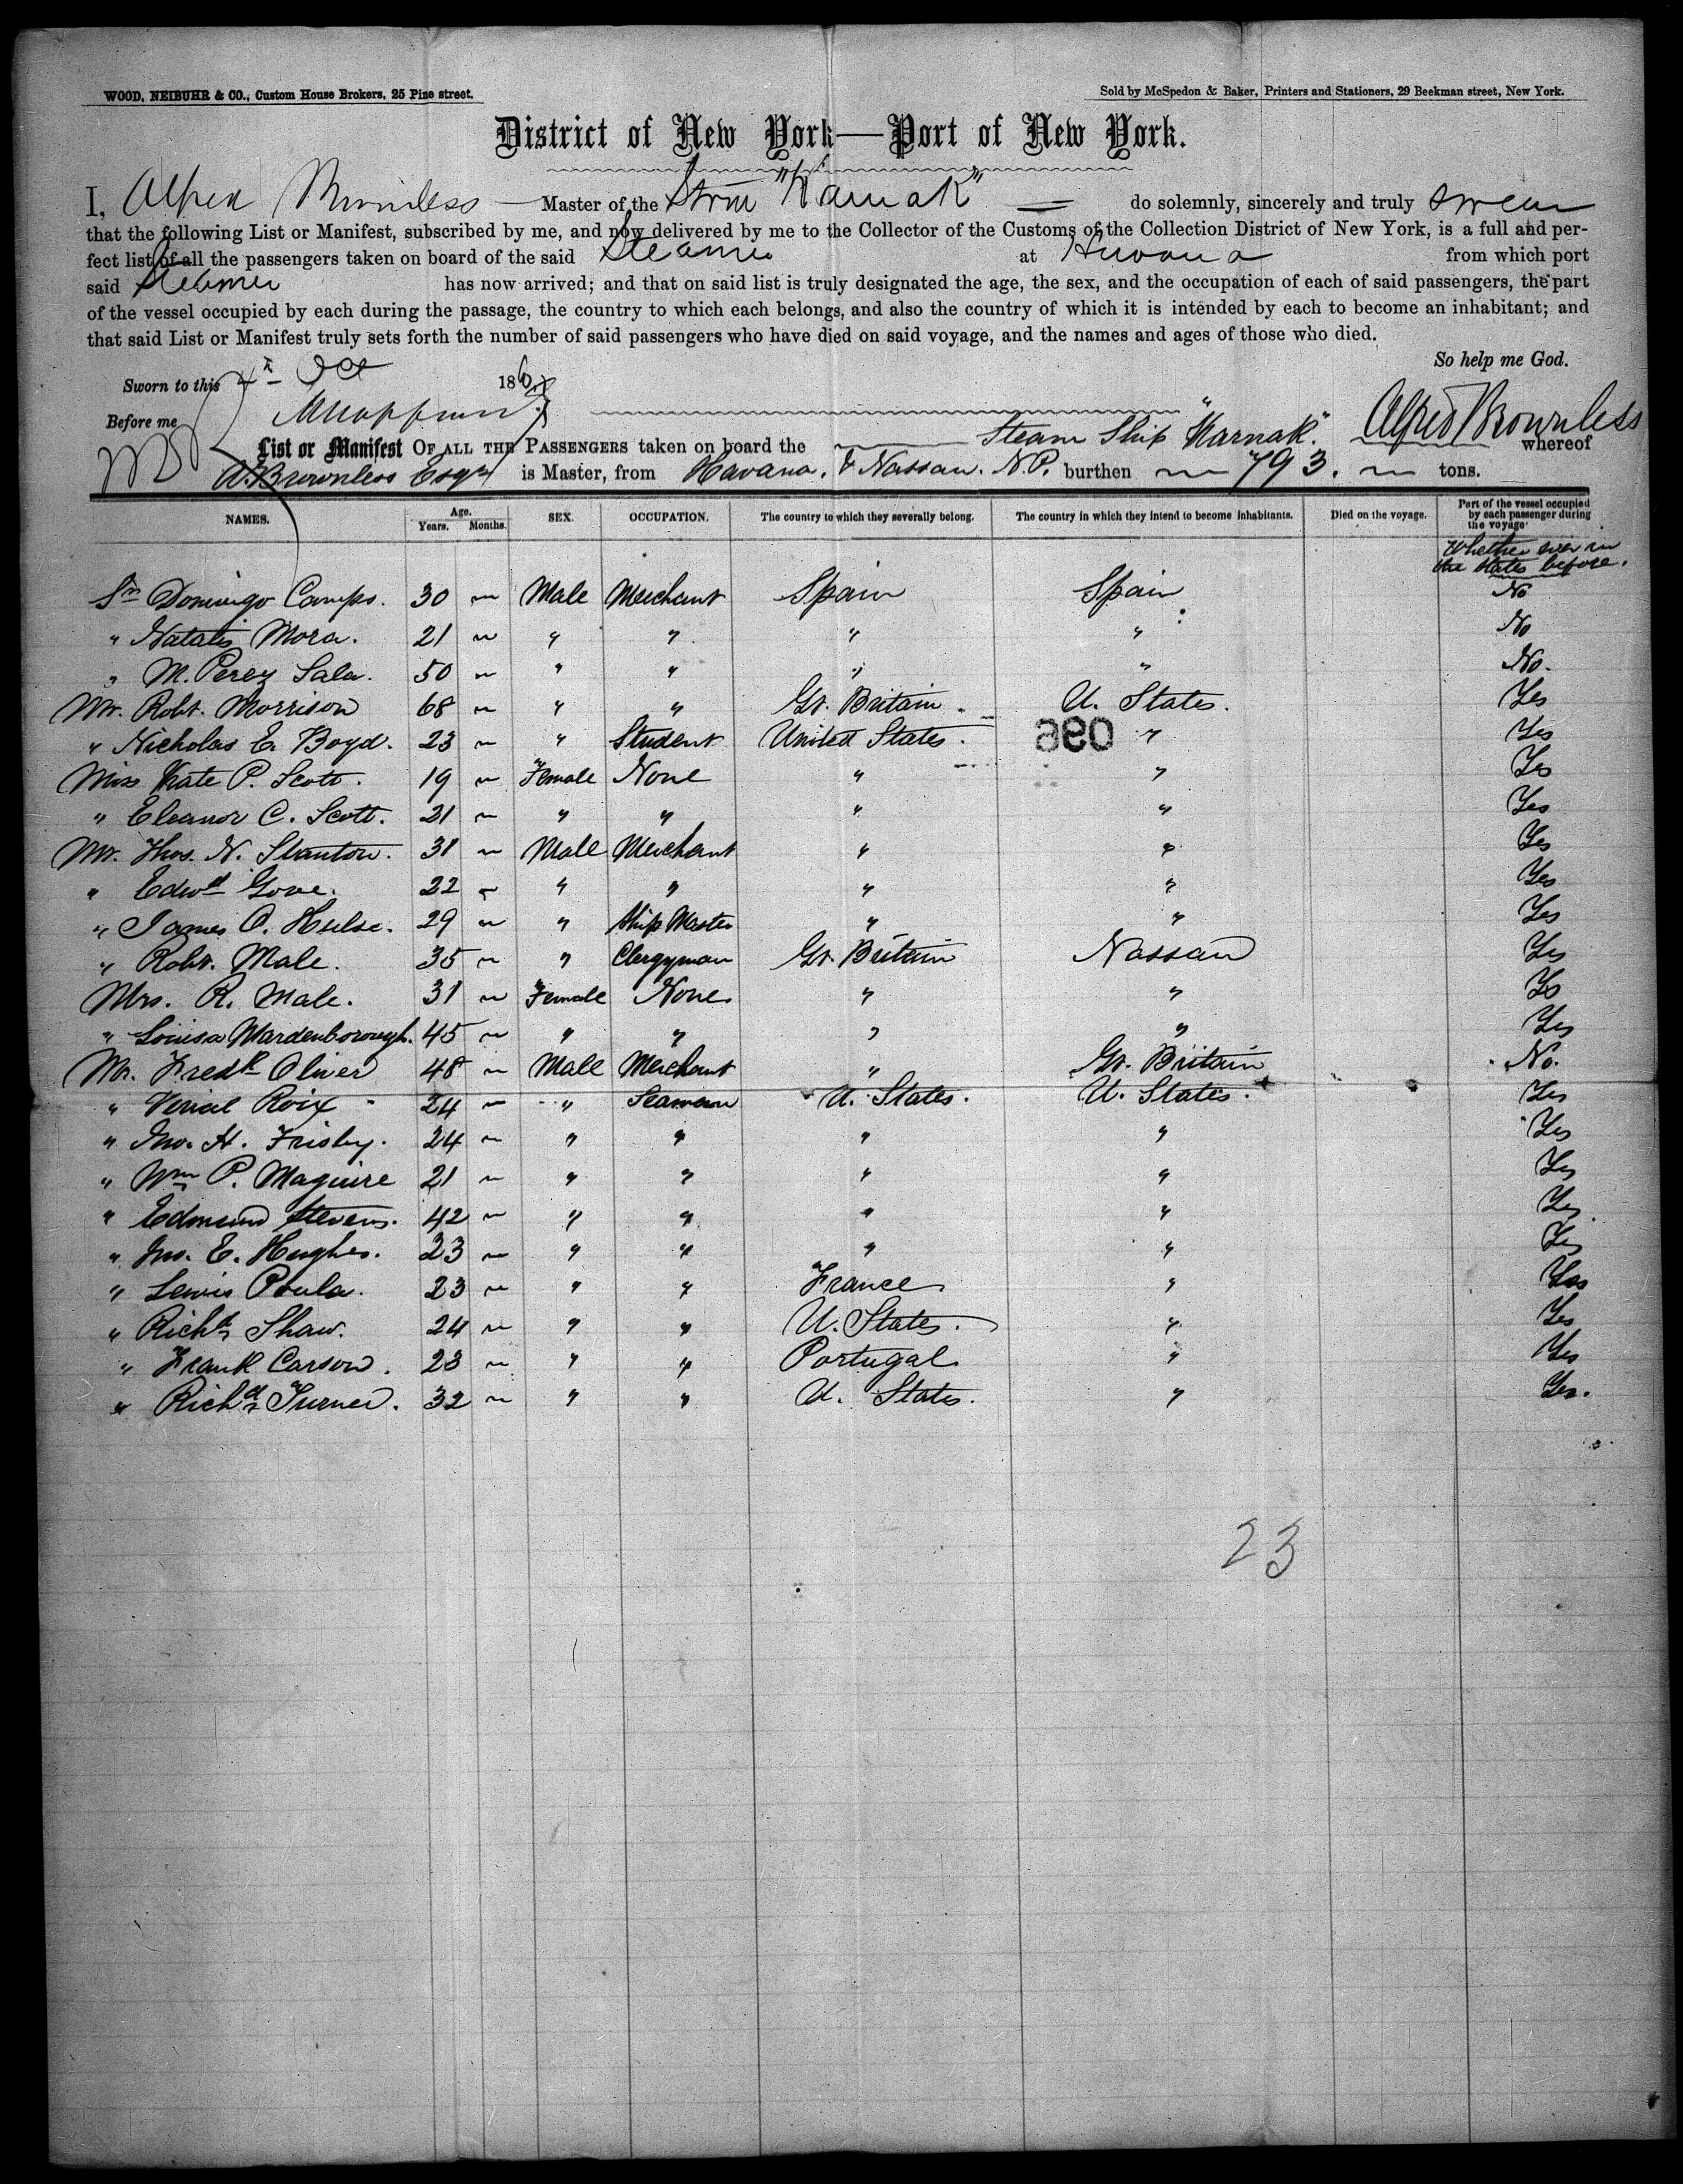 WOOD, NEIBUHR & CO., Custom House Brokers, 25 Pine street.
Sold by McSpedon & Baker, Printers and Stationers, 29 Beekman street, New York.
District of New York—Port of New York.
I, Alfred Brownless Master of the Stmr "Karnak" do solemnly, sincerely and truly swear
that the following List or Manifest, subscribed by me, and now delivered by me to the Collector of the Customs of the Collection District of New York, is a full and per-
fect list of all the passengers taken on board of the said Steamer at Havana from which port
said Steamer has now arrived; and that on said list is truly designated the age, the sex, and the occupation of each of said passengers, the part
of the vessel occupied by each during the passage, the country to which each belongs, and also the country of which it is intended by each to become an inhabitant; and
that said List or Manifest truly sets forth the number of said passengers who have died on said voyage, and the names and ages of those who died.
So help me God.
Sworn to this 4th Oct 186
Before me
Alfred Brownless
List or Manifest OF ALL THE PASSENGERS taken on board the Steam Ship "Karnak". whereof
A. Brownless Esqr is Master, from Havana, & Nassau. N.P. burthen 793. tons.
NAMES. Age. Years. Months. SEX. OCCUPATION. The country to which they severally belong. The country in which they intend to become inhabitants. Died on the voyage. Part of the vessel occupied by each passenger during the voyage
Whether ever in the States before.
Sr. Domingo Camps. 30 ~ Male Merchant Spain Spain No
" Natalis Mora. 21 ~ " " " " No
" M. Perez Sala. 50 ~ " " " " No.
Mr. Robt. Morrison 68 ~ " " Gt. Britain U. States. Yes
" Nicholas E. Boyd. 23 ~ " Student United States. " Yes
090
Miss Kate P. Scott. 19 ~ Female None " " Yes
" Eleanor C. Scott. 21 ~ " " " " Yes
Mr. Thos. N. Stanton. 31 ~ Male Merchant " " Yes
" Edwd Gove. 22 ~ " " " " Yes
" James O. Hulse. 29 ~ " Ship Master " " Yes
" Robt. Male. 35 ~ " Clergyman Gt. Britain Nassau Yes
Mrs. R. Male. 31 ~ Female None " " Yes
" Louisa Wardenborough. 45 ~ " " " " Yes
Mr. Fredk Oliver 48 ~ Male Merchant " Gt. Britain No.
" Roix 24 ~ " Seaman U. States. U. States. Yes
" Jno. H. Frisby. 24 ~ " " " " Yes
" Wm P. Maguire 21 ~ " " " " Yes
" Edmund Stevens. 42 ~ " " " " Yes
" Jno. E. Hughes. 23 ~ " " " " Yes
" Lewis Poula. 23 ~ " " France " Yes
" Richd Shaw. 24 ~ " " U. States. " Yes
" Frank Carson. 23 ~ " " Portugal " Yes
" Richd Turner. 32 ~ " " U. States. " Yes.
23